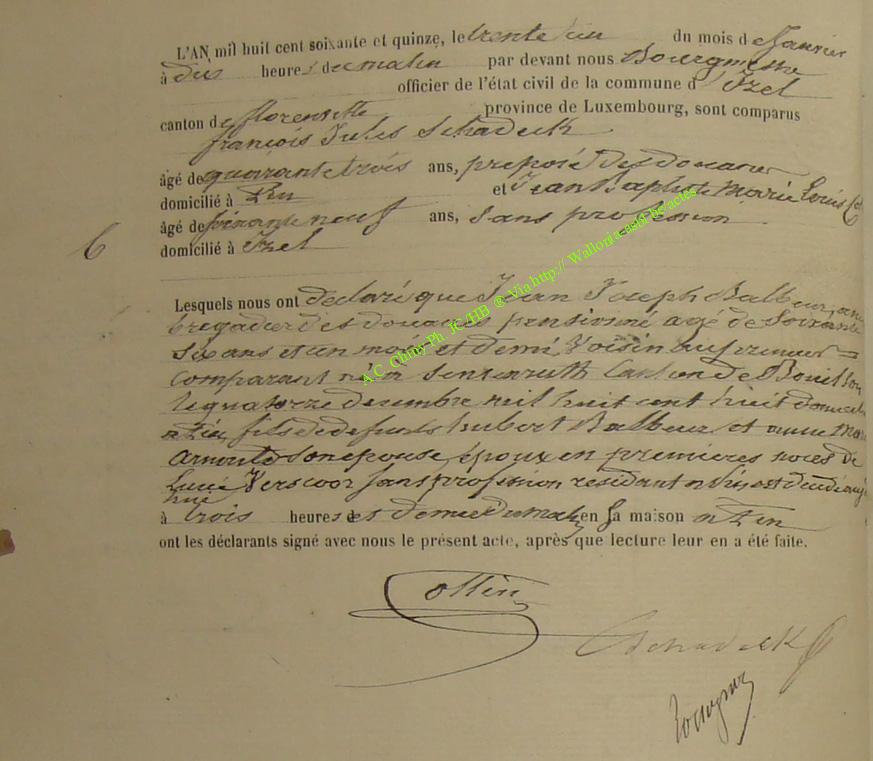 L'AN mil huit cent soixante et quinze, le trente un du mois de Janvier
à dix heures du matin par devant nous Bourgmestre
officier de l'état civil de la commune d'Izel
canton de florenville province de Luxembourg, sont comparus
françois Jules Schadeck
âgé de quarante trois ans, preposé des douanes
domicilié à et Jean Baptiste Marie Louis
âgé de soixante neuf ans, sans profession
domicilié à Izel
6
Lesquels nous ont declaré que Jean Joseph Balbeur,
bregadier des douanes pensionné agé de Soixante
Six ans et un mois et demi, Voisin au premier
comparant né à Sensenruth Canton de Bouillon
le quatorze decembre mil huit cent huit
fils de defunts hubert Balbeur et anne
arnould son epouse, époux en premieres noces de
Lucie Verscoor sans profession residant
à trois heures et demie du matin en sa maison
ont les déclarants signé avec nous le présent acte, après que lecture leur en a été faite.
Schadeck
A C Chiny Ph JC/HB ® Via http:// Wallonia-asbl be/actes